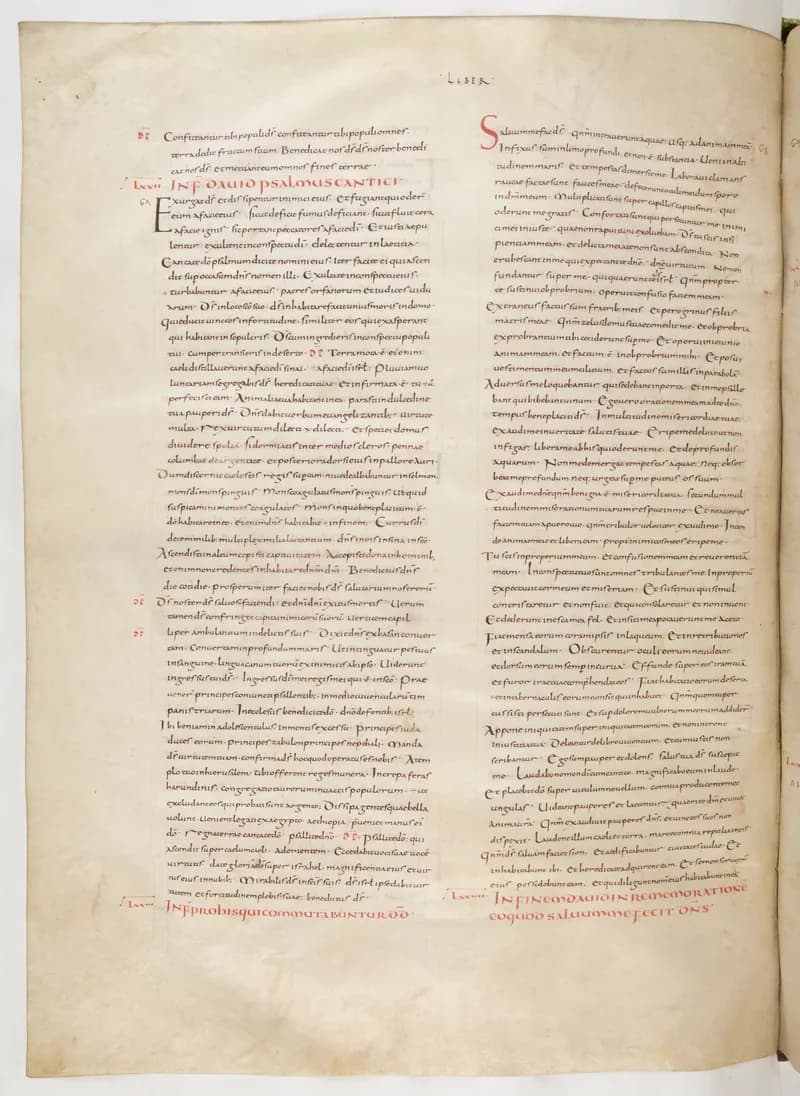 LIBER
Confiteantur tibi populi d̄s. confiteantur tibi populi omnes.
terra dedit fructum suum. Benedicat nos d̄s d̄s noster benedi
cat nos d̄s. et metuant eum omnes fines terrae.
LXVII IN F̄ DAVID PSALMUS CANTICI
Exurgat d̄s et dissipentur inimici eius. Et fugiant qui oder̄
eum a facie eius. Sicut deficit fumus deficiant. Sicut fluit cera
a facie ignis. sic pereant peccatores a facie dī. Et iusti aepu
lentur. exultent in conspectu dī. delectentur in laetitia
Cantate dō psalmum dicite nomini eius. Iter facite ei qui ascen
dit sup occasum dn̄s nomen illi. Exultate in conspectu eius.
turbabuntur a facie eius. patres orfanorum et iudices vidu
arum. D̄s in loco sc̄o suo. d̄s inhabitare facit unius moris in domo.
Qui educit vinctos in fortitudine. similiter eos qui exasperant
qui habitant in sepulcris. D̄s cum ingredieris in conspectu populi
tui. cum pertransieris in deserto. Terra mota ē. etenim
caeli distillaverunt a facie dī sinai. a facie dī isrl̄. Pluviam vo
luntariam segregabis d̄s hereditati tuae. Et infirmata ē. tu v̄
perfecisti eam. Animalia tua habitant in ea. parasti in dulcedine
tua pauperi d̄s. Dn̄s dabit verbum evangelizantib;. virtute
multa. Rex virtutum dilecti dilecti. Et speciei domus
dividere spolia. Si dormiatis inter medios cleros. pennae
columbae deargentatae. et posteriora dorsi eius in pallore auri.
Dum discernit caelestis reges sup eam. nive dealbabuntur in selmon.
mons dī mons pinguis. Mons coagulatus mons pinguis. Ut quid
suspicamini montes coagulatos. Mons in quo beneplacitum ē.
dō habitare in eo. etenim dn̄s habitabit in finem. Currus dī
decem milib; multiplex milia laetantium. dn̄s in eis in sina in sc̄o.
Ascendisti in altum cepisti captivitatem. Accepisti dona in hominib;
etenim non credentes inhabitare dn̄m dm̄. Benedictus dn̄s
die cotidie. prosperum iter faciet nobis d̄s salutarium nostrorū.
D̄s noster d̄s salvos faciendi. et dn̄i dn̄i exitus mortis. Verum
tamen d̄s confringet capita inimicorū suorū. verticem capil
li perambulantium in delictis suis. Dixit dn̄s ex basan conver
tam. Convertam in profundum maris. Ut intinguatur pes tuus
in sanguine. lingua canum tuorū ex inimicis ab ipso. Viderunt
ingressus tui d̄s. Ingressus dī mei regis mei qui ē in sc̄o. Prae
venerū principes coniuncti psallentib;. in medio iuvencularum tim
panistriarum. In ecclesiis benedicite dō. dn̄o de fontib; isrl̄.
Ibi beniamin adolescentulus. in mentis excessu. Principes iuda
duces eorum. principes zabulon principes nepthali. Manda
d̄s virtuti tuae. confirma d̄s hoc quod operatus es nobis. A tem
plo tuo in hierusalem. tibi offerent reges munera. Increpa feras
harundinis. congregatio taurorum in vaccis populorum. ut
excludant eos qui probati sunt argento. Dissipa gentes quae bella
volunt. venient legati ex aegypto. aethiopia praeveniet manus ei
dō. Regna terrae cantate dō. psallite dn̄o. Psallite dō. qui
ascendit super caelum caeli. ad orientem. Ecce dabit voci suae vocē
virtutis. date gloriā dō super israhel. magnificentia eius et vir
tus eius in nubib;. Mirabilis d̄s in sc̄is suis. d̄s isrl̄ ipse dabit vir
tutem et fortitudinem plebis suae. benedictus d̄s.
LXVIII IN F̄ PRO HIS QUI COMMUTABUNTUR DD̄
Salvum me fac d̄s. Qnm̄ intraverunt aquae usq; ad animam meā
Infixus sum in limo profundi. et non ē substantia. Veni in alti
tudinem maris. et tempestas dimersit me. Laboravi clamans
raucae factae sunt fauces meae. defecerunt oculi mei dum spero
in dm̄ meum. Multiplicati sunt super capillos capitis mei. qui
oderunt me gratis. Confortati sunt qui persecuti sunt me inimi
ci mei iniuste. quae non rapui tunc exolvebam. D̄s tu scis insi
pientiam meam. et delicta mea a te non sunt abscondita. Non
erubescant in me qui expectant te dn̄e. dn̄e virtutum. Non con
fundantur super me. qui quaerunt te d̄s isrl̄. Qnm̄ propter
te sustinui obprobrium. operuit confusio faciem meam.
Extraneus factus sum fratrib; meis. et peregrinus filiis
matris meae. Qnm̄ zelus domus tuae comedit me. et obprobria
exprobrantium tibi ceciderunt sup me. Et operui in ieiunio
animam meam. et factum ē in obprobrium mihi. Et posui
vestimentum meum cilicium. et factus sum illis in parabolā.
Adversum me loquebantur qui sedebant in porta. et in me psalle
bant qui bibebant vinum. Ego vero orationem meam ad te dn̄e.
tempus beneplaciti d̄s. In multitudine misericordiae tuae.
exaudi me in veritate salutis tuae. Eripe me de luto ut non
infigar. libera me ab his qui oderunt me. et de profundis
aquarum. Non me demergat tempestas aquae. neq; obsor
beat me profundum. neq; urgeat sup me puteus os suum.
Exaudi me dn̄e qnm̄ benigna ē misericordia tua. secundum mul
titudinem miserationum tuarum respice in me. Et ne avertas
faciem tuam a puero tuo. qnm̄ tribulor velociter exaudi me. Inten
de animae meae et libera eam. propter inimicos meos eripe me.
Tu scis improperium meum. et confusionem meam et reverentiā
meam. In conspectu tuo sunt omnes tribulantes me. Inproperiū
expectavit cor meum et miseriam. Et sustinui qui simul
contristaretur et non fuit. et qui consolaretur et non inveni
Et dederunt in esca mea fel. et in siti mea potaverunt me aceto.
Fiat mensa eorum coram ipsis in laqueum. et in retributiones
et in scandalum. Obscurentur oculi eorum ne videant.
et dorsum eorum semp incurva. Effunde super eos iram tuā.
et furor irae tuae comprehendat eos. Fiat habitatio eorum deserta.
et in tabernaculis eorum non sit qui inhabitet. Qnm̄ quem tu per
cussisti persecuti sunt. et sup dolorem vulnerum meorum addider̄
Appone iniquitatem super iniquitatem eorum. et non intrent
in iustitia tua. Deleantur de libro viventium. et cum iustis non
scribantur. Ego sum pauper et dolens. salus tua d̄s suscepit
me. Laudabo nomen dī cum cantico. magnificabo eum in laude.
et placebit dō super vitulum novellum. cornua producentem et
ungulas. Videant pauperes et laetentur. quaerite dm̄ et vivet
anima vrā. Qnm̄ exaudivit pauperes dn̄s. et vinctos suos non
dispexit. Laudent illum caeli et terra. mare et omnia reptilia in eis
Qnm̄ d̄s salvam faciet sion. et aedificabuntur civitates iudae. Et
inhabitabunt ibi. et hereditate adquirent eam. Et semen servorū
eius possidebunt eam. et qui diligunt nomen eius habitabunt in ea
LXVIIII IN FINEM DAVID IN REMEMORATIONE
EO QUOD SALVUM ME FECIT DN̄S